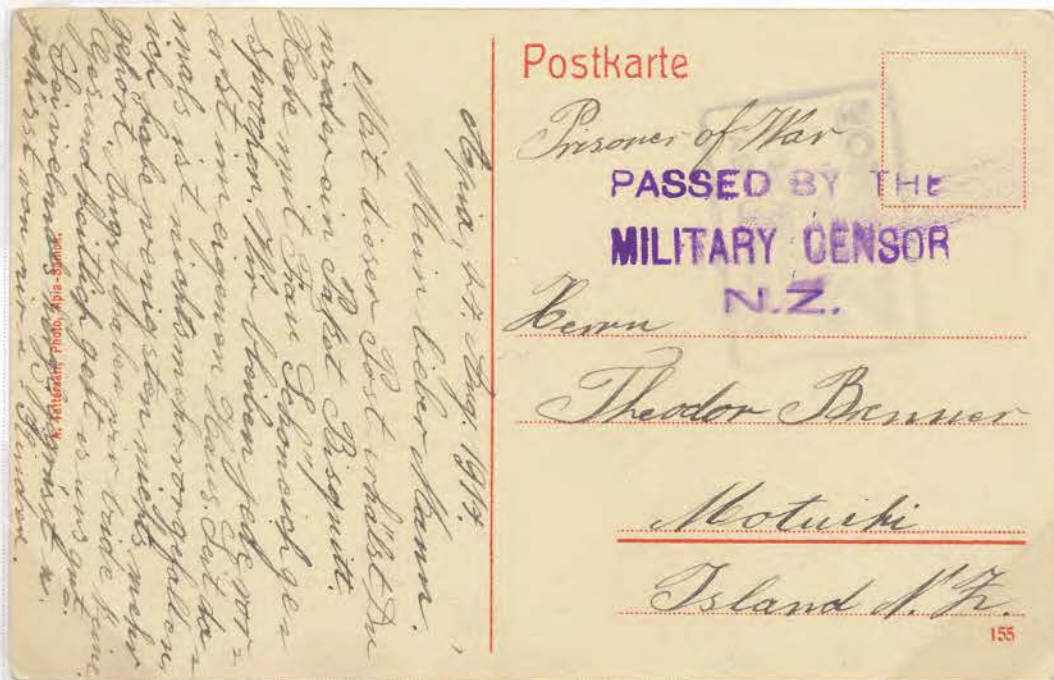 Postkarte
Prisoner of War
PASSED BY THE
MILITARY CENSOR
N.Z.
Herrn
Theodor Brenner
Motuihi
Island N. Z.
155
Apia, Aug. 1917.
Mein lieber Mann.
Mit dieser Post erhälst Du
wieder ein Paket Bisquitt.
Habe mit Frau Schöneich ge=
sprochen. Wir bleiben jede vor=
erst im eigenen Haus. Seit da=
mals ist nichts mehr vorgefallen,
ich habe wenigstens nichts mehr
gehört. Angst haben wir beide keine.
Gesundheitlich geht es uns gut.
Sei vielmals gegrüsst u.
geküsst von uns
Photo, Apia-Samoa.